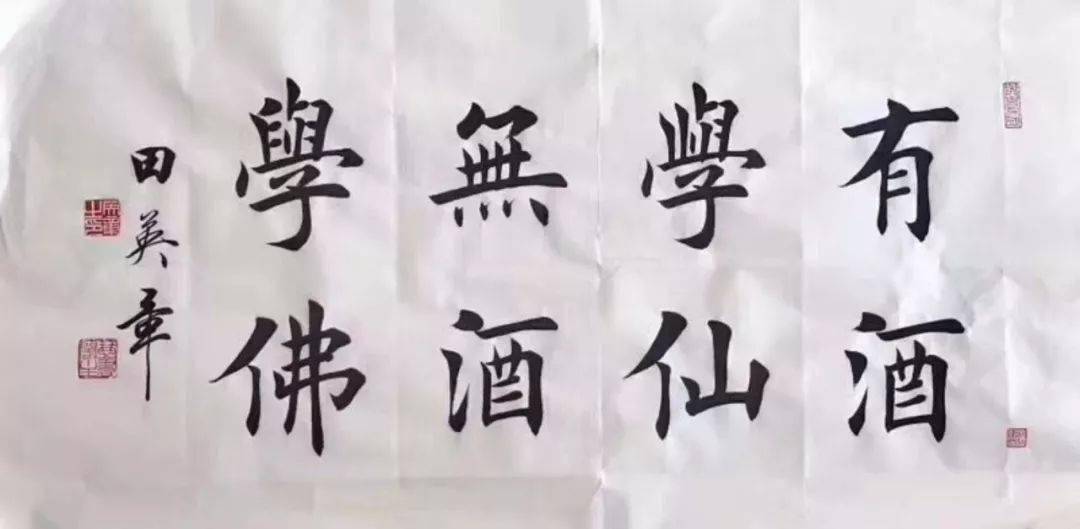 有酒
學仙
無酒
學佛
田英章